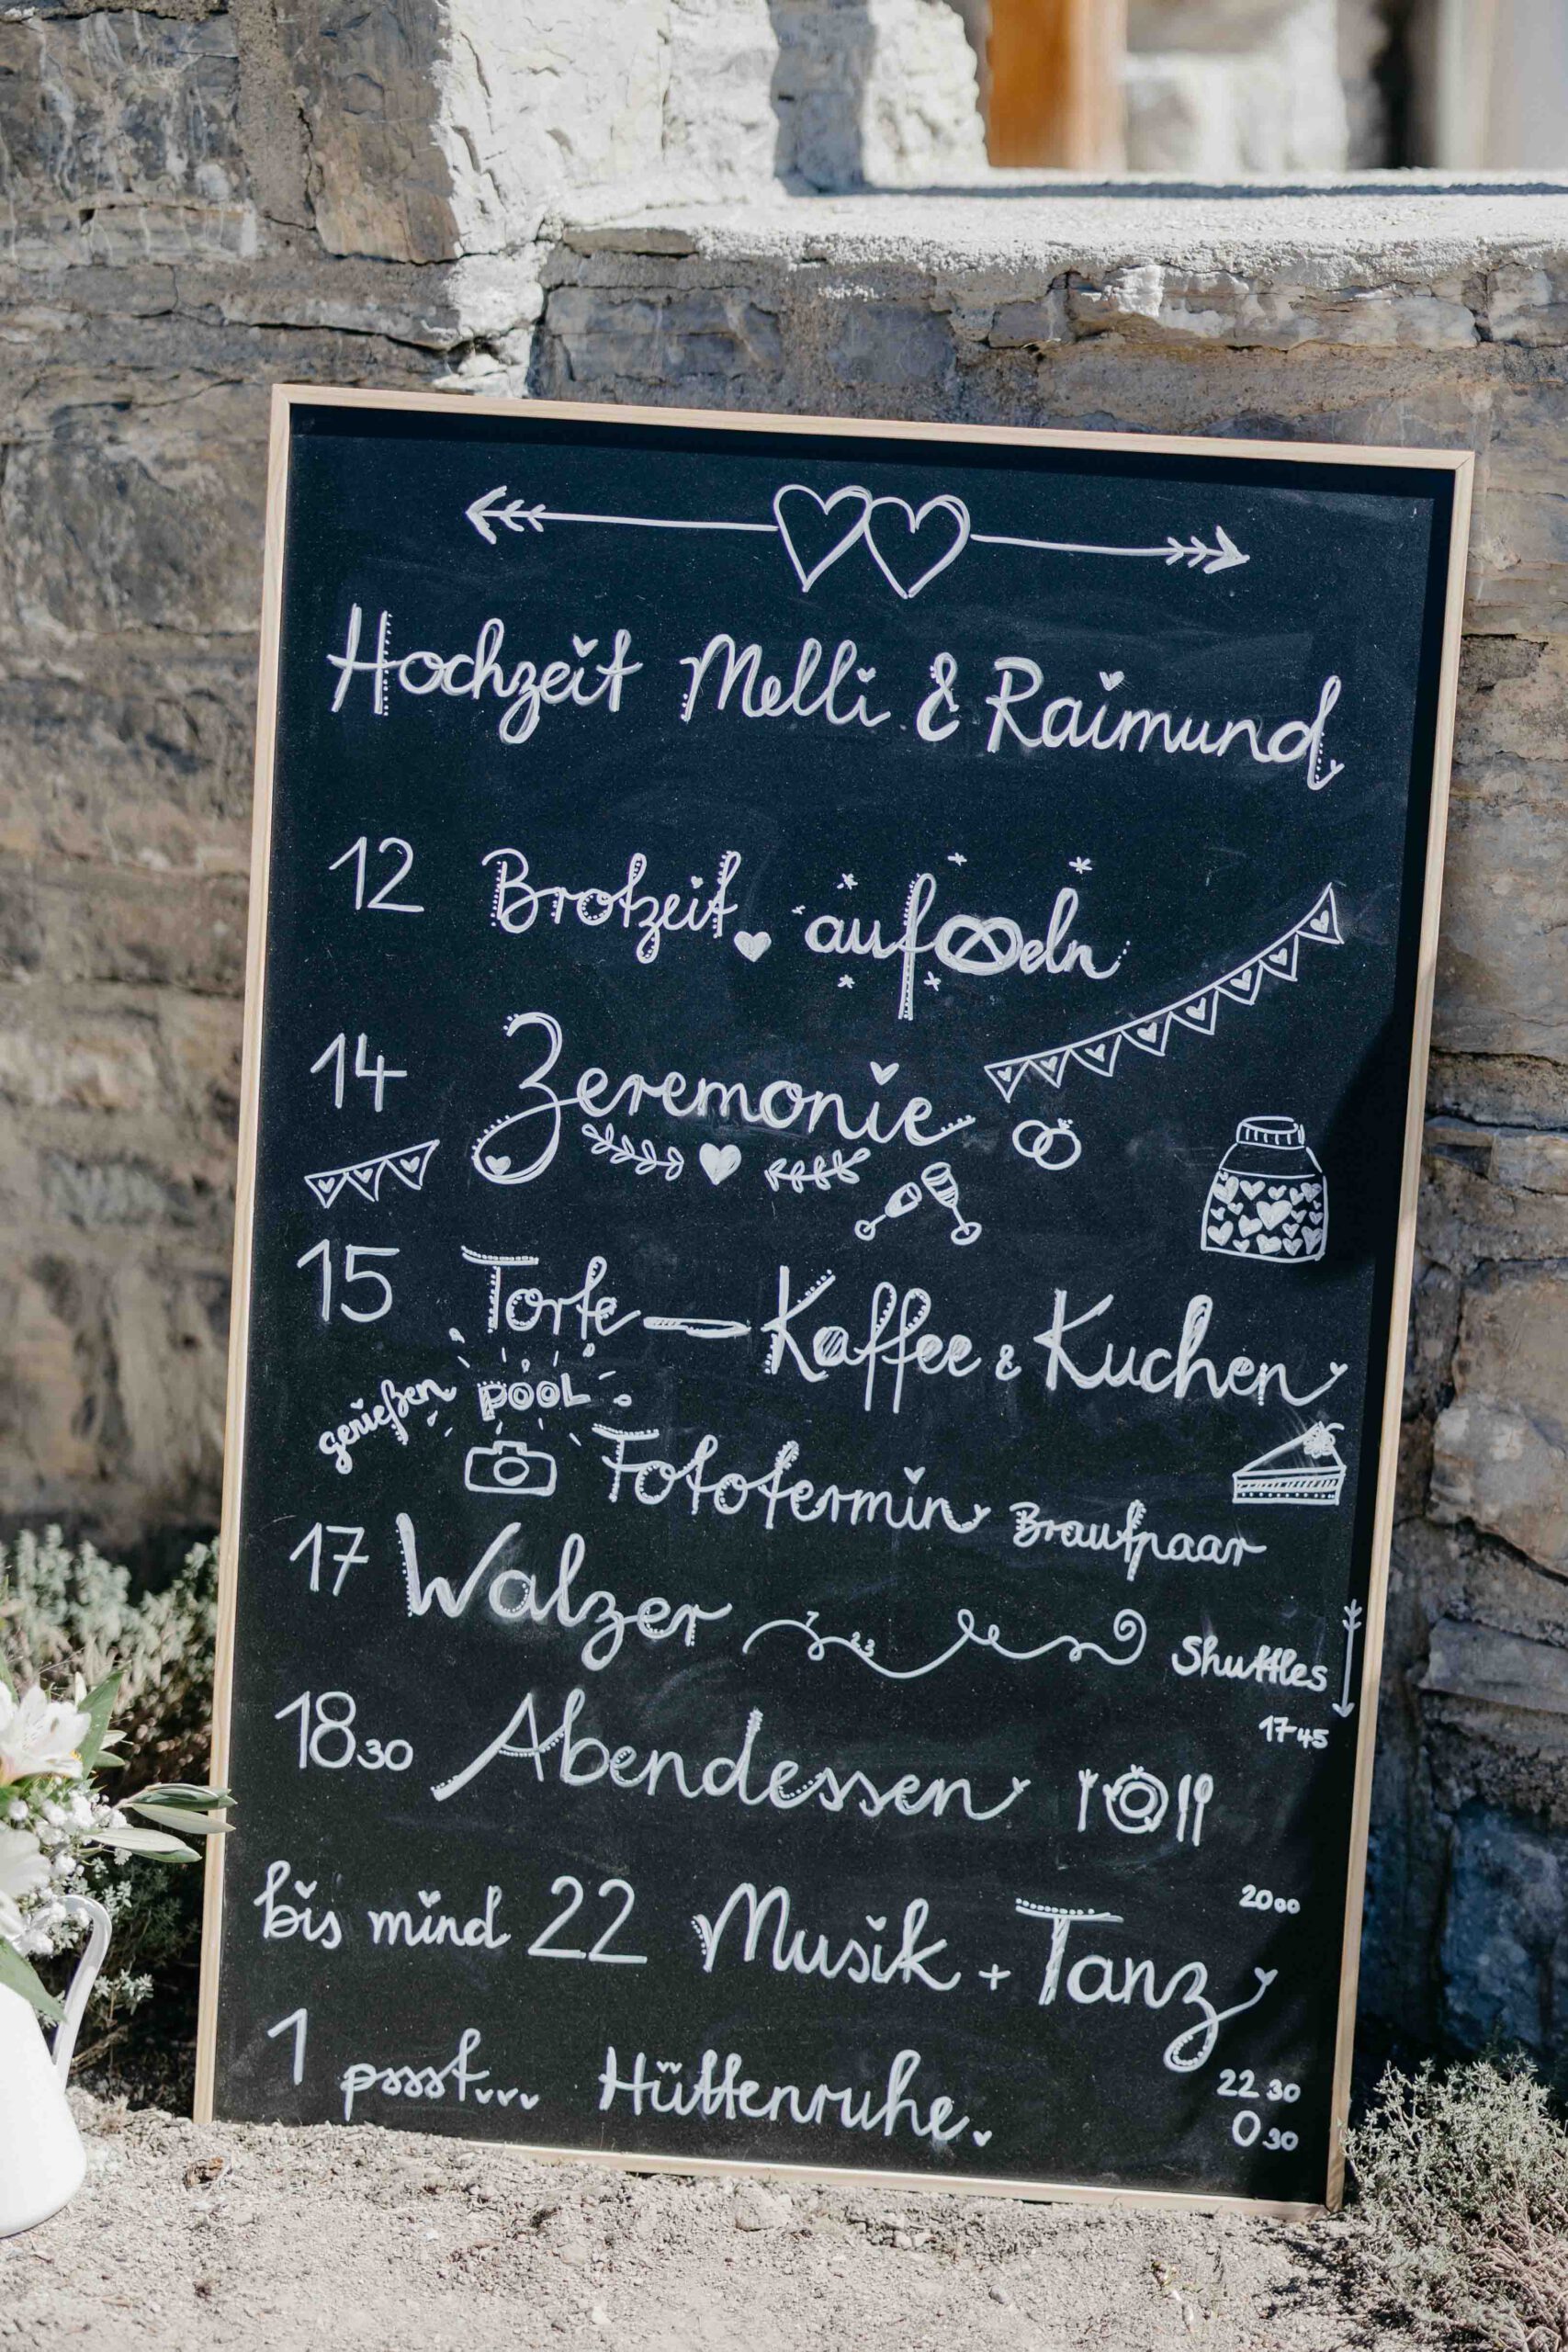 Hochzeit Melli & Raimund
12 Brotzeit aufbrezeln
14 Zeremonie
15 Torte Kaffee & Kuchen
genießen POOL
Fototermin Brautpaar
17 Walzer Shuttles
17 45
18 30 Abendessen
20 00
bis mind 22 Musik + Tanz
1 pssst... Hüttenruhe.
22 30
0 30